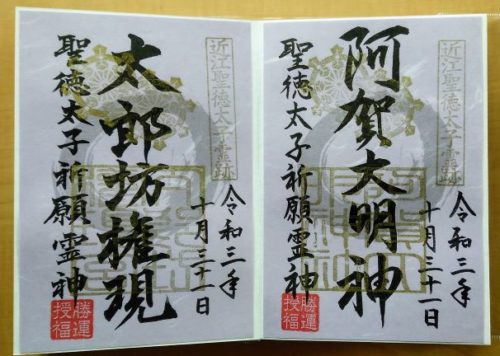 近江聖徳太子霊跡
阿賀大明神
聖徳太子祈願霊神
令和三年
十月三十一日
勝運
授福
近江聖徳太子霊跡
太郎坊権現
聖徳太子祈願霊神
令和三年
十月三十一日
勝運
授福